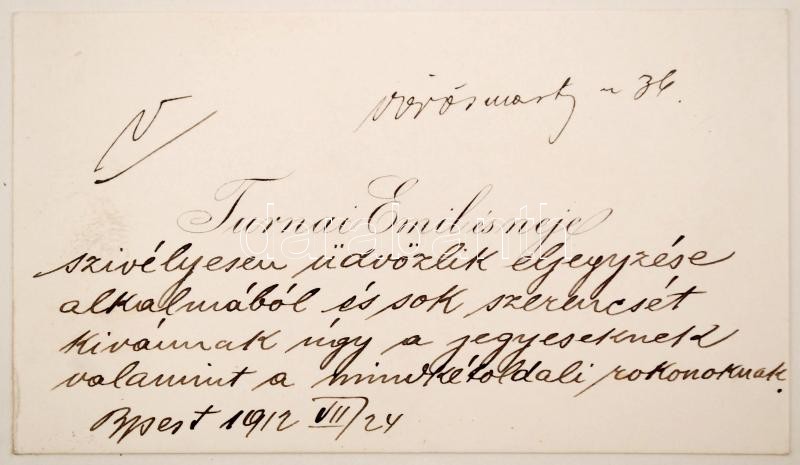 Vörösmarty u 36.
V
Turnai Emil és neje
szivélyesen üdvözlik eljegyzése
alkalmából és sok szerencsét
kivánnak úgy a jegyeseknek
valamint a mindkétoldali rokonoknak.
Bpest 1912 VII/24
darabanth